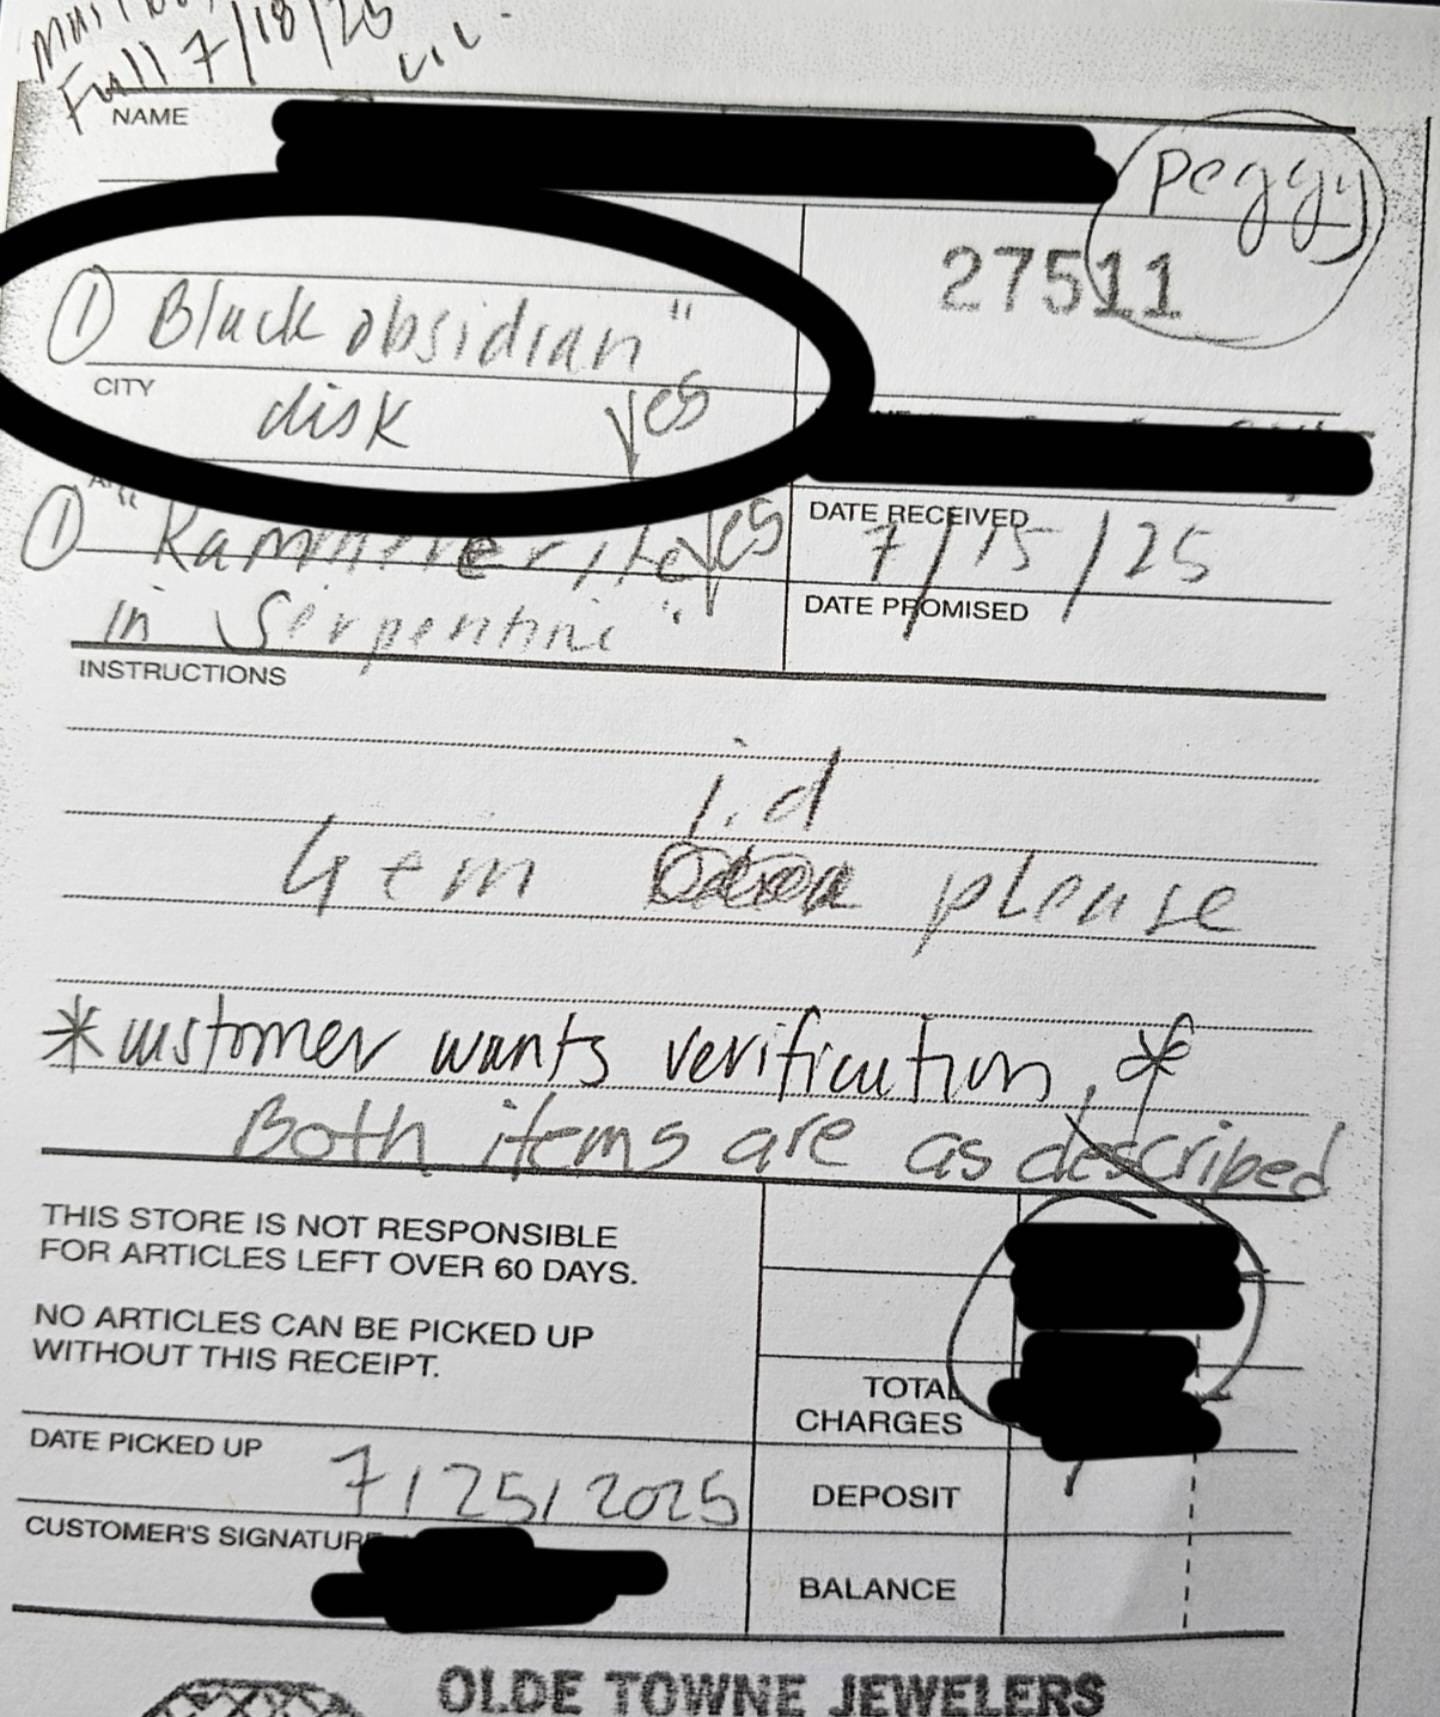 Full 7/18/25
NAME
Peggy
27511
① Black obsidian"
CITY
disk yes
① "Kammererite yes
in Serpentine"
DATE RECEIVED
7/15/25
DATE PROMISED
INSTRUCTIONS
i.d
Gem please
*customer wants verification.*
Both items are as described
THIS STORE IS NOT RESPONSIBLE
FOR ARTICLES LEFT OVER 60 DAYS.
NO ARTICLES CAN BE PICKED UP
WITHOUT THIS RECEIPT.
TOTAL
CHARGES
DATE PICKED UP 7/25/2025
DEPOSIT
CUSTOMER'S SIGNATURE
BALANCE
OLDE TOWNE JEWELERS